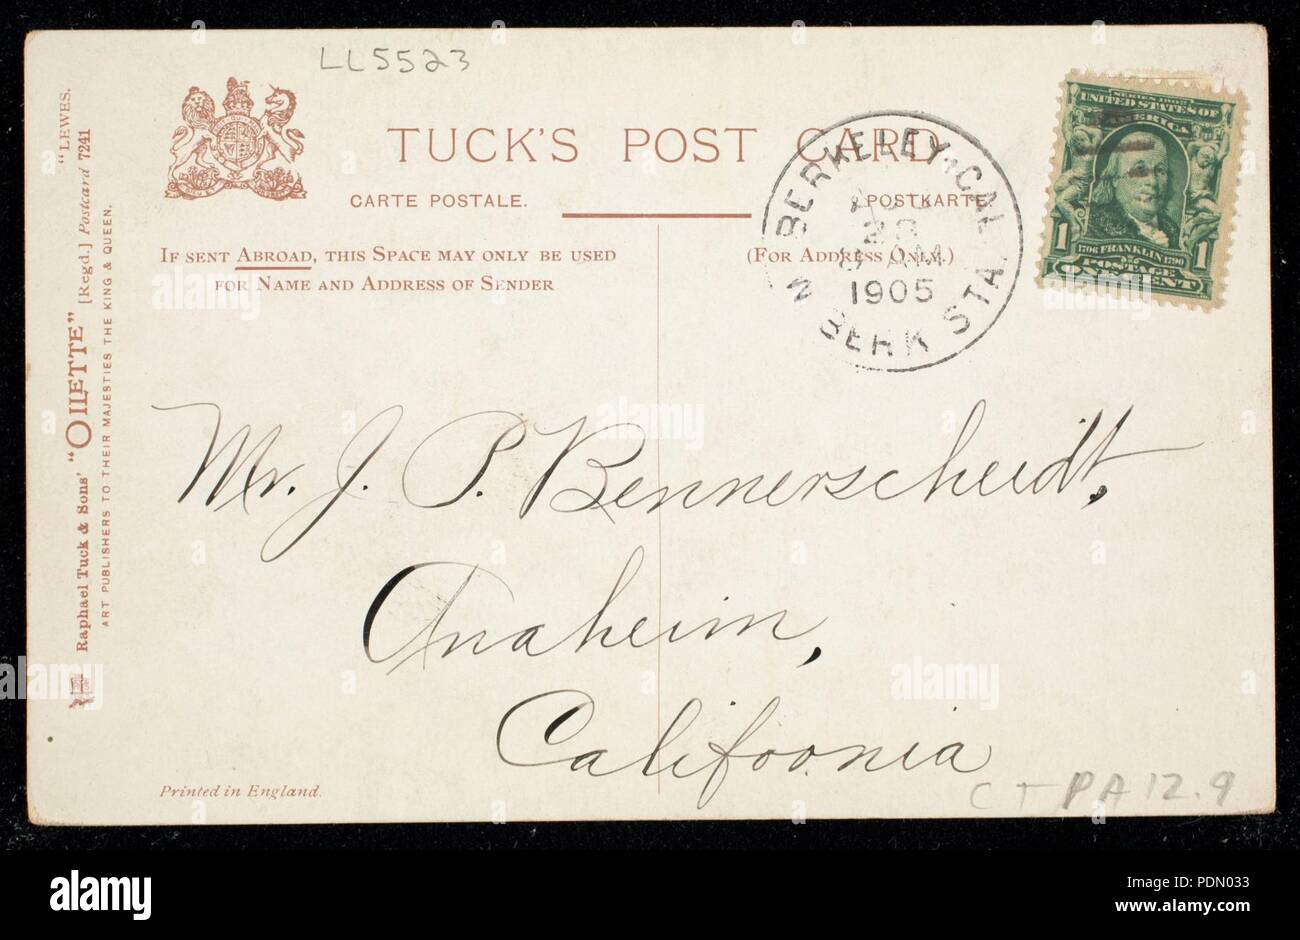 LL5523
TUCK'S POST CARD
CARTE POSTALE. POSTKARTE
IF SENT ABROAD, THIS SPACE MAY ONLY BE USED
FOR NAME AND ADDRESS OF SENDER
(FOR ADDRESS ONLY.)
BERKELEY, CAL.
28
8 AM
1905
N BERK STA.
SERIES 1902
UNITED STATES OF
AMERICA
1 1
1706 FRANKLIN 1790
POSTAGE
ONE CENT
"LEWES.
Raphael Tuck & Sons' "OILETTE" [Regd.] Postcard 7241
ART PUBLISHERS TO THEIR MAJESTIES THE KING & QUEEN.
Mr. J. P. Bennerscheidt,
Anaheim,
California
Printed in England.
CT PA 12.9
alamy
Image ID: PDN033
www.alamy.com